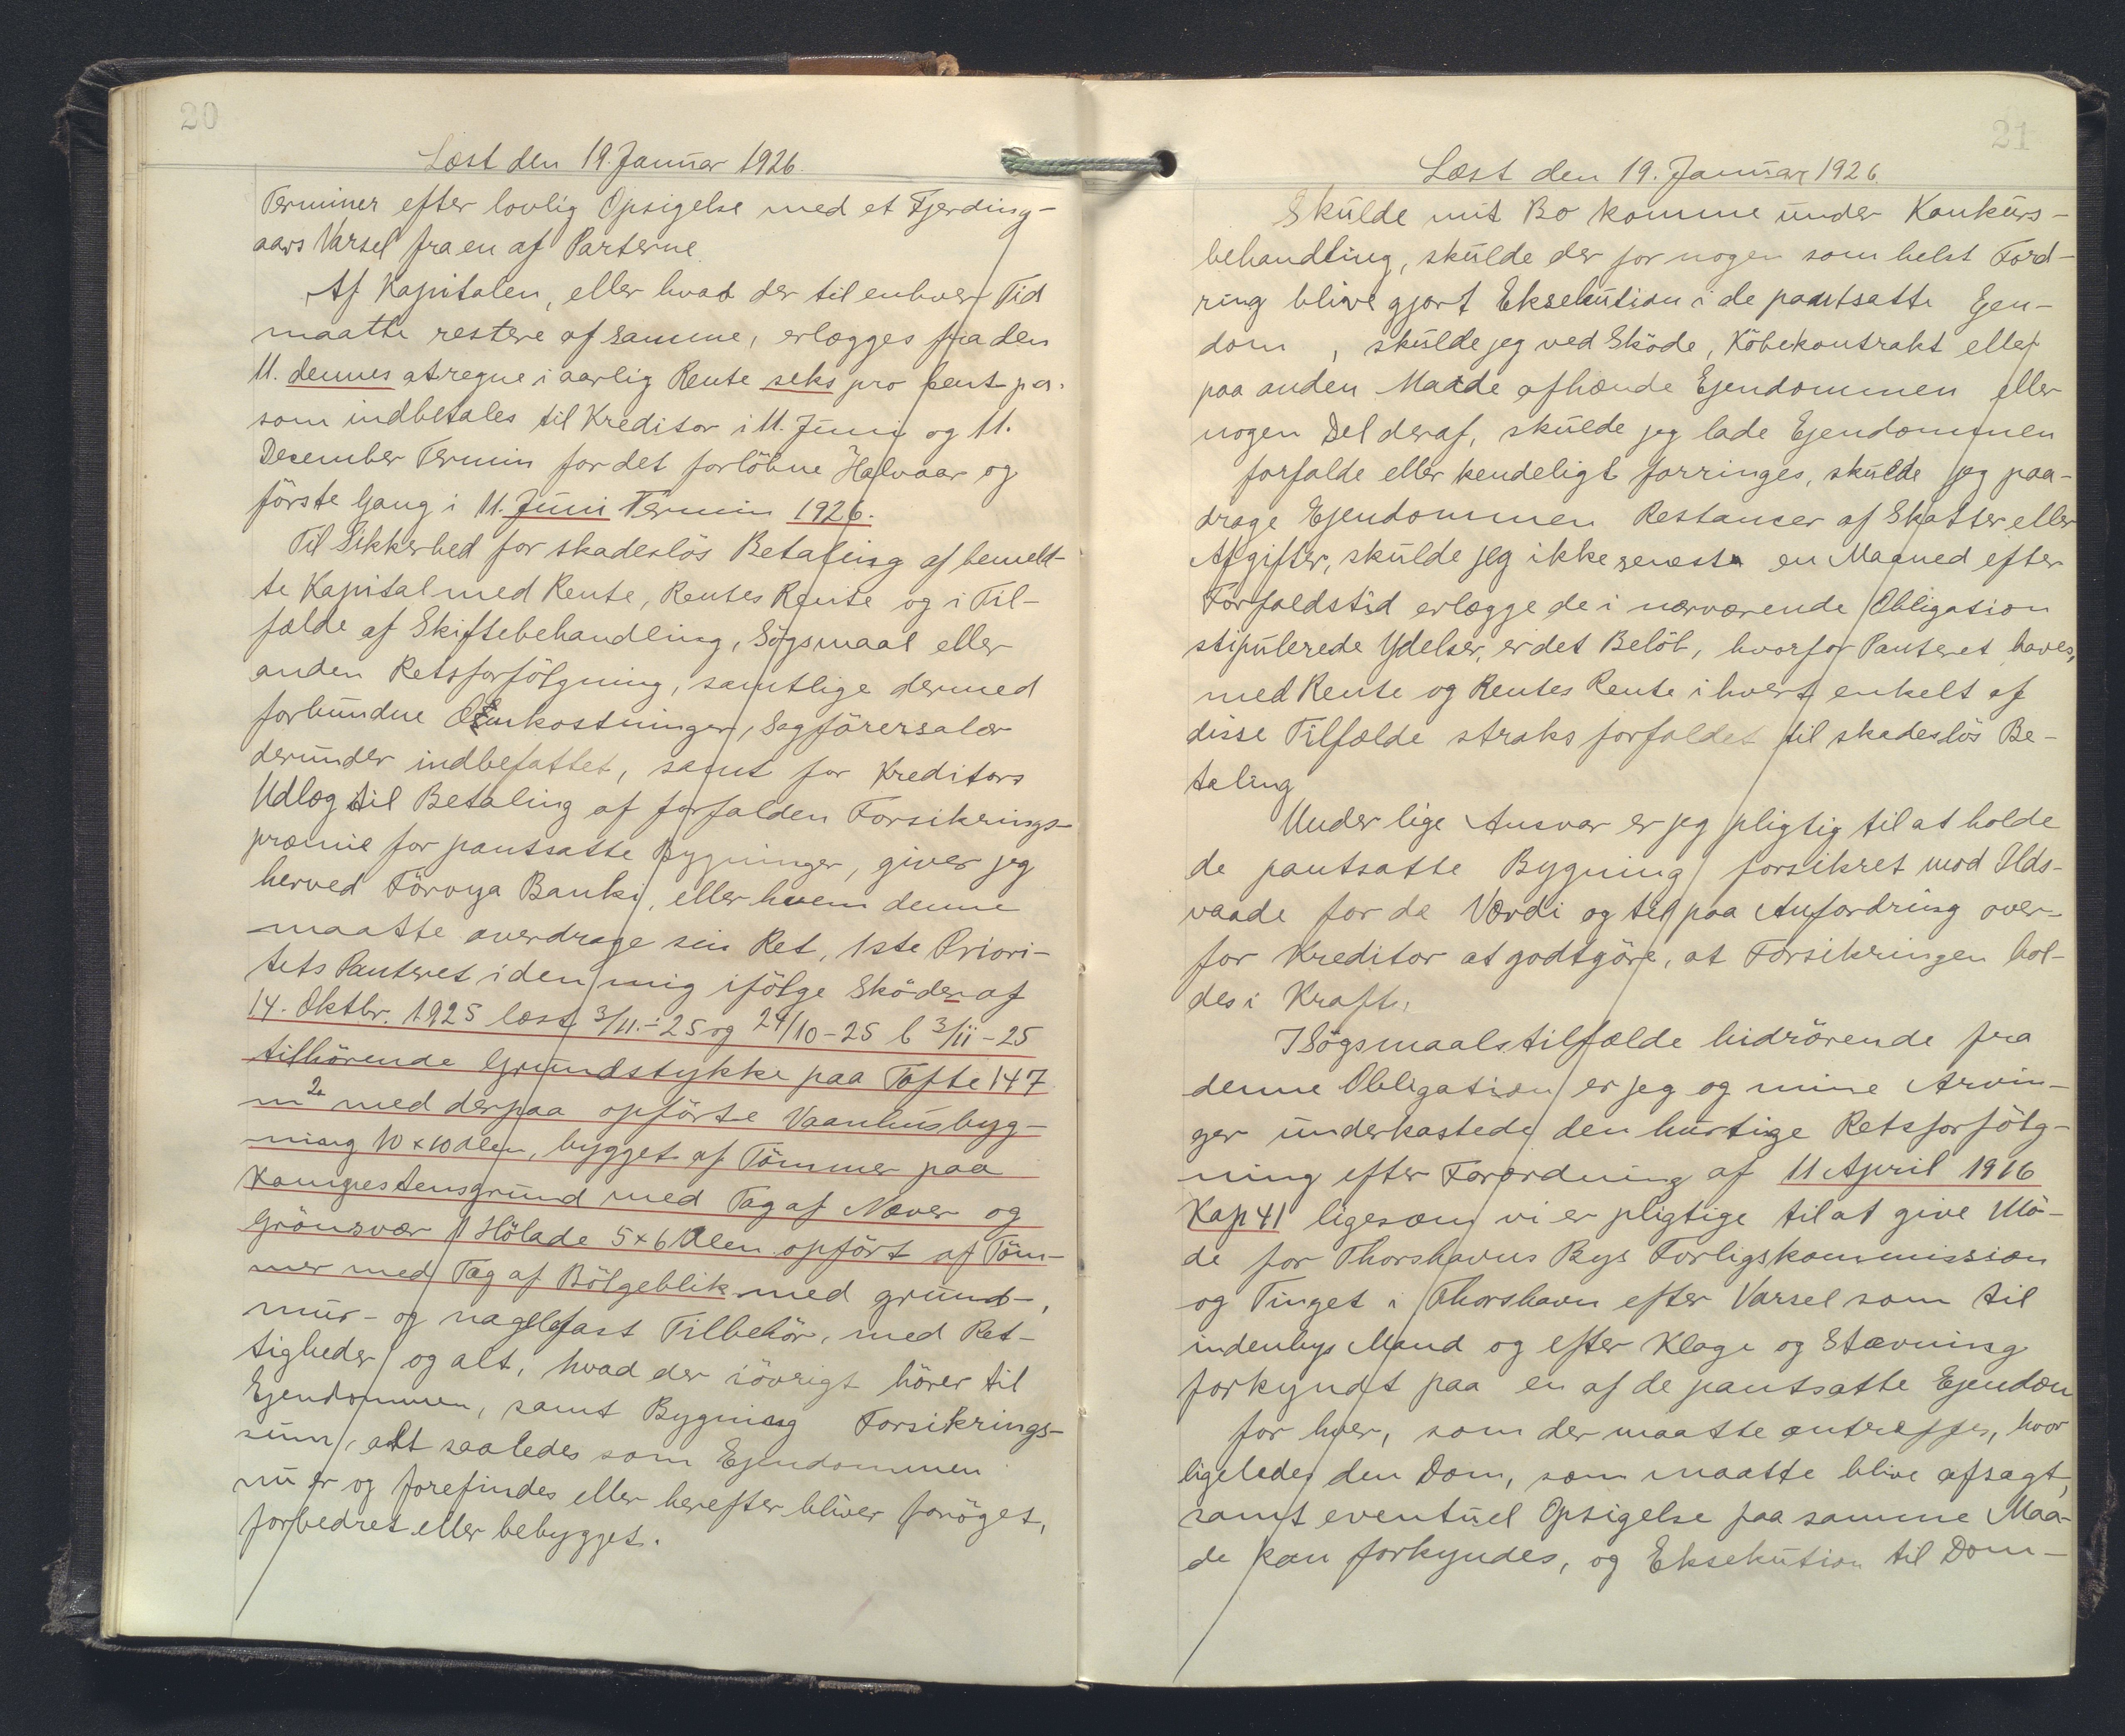 20
Læst den 19. Januar 1926.
Terminer efter lovlig Opsigelse med et Fjerding-
aars Varsel fra en af Parterne.
Af Kapitalen, eller hvad der til enhver Tid
maatte restere af samme, erlægges fra den
11. dennes at regne i aarlig Rente seks pro Cent p.a.
som indbetales til Kreditor i 11. Juni og 11.
December Termin for det forløbne Halvaar og
første Gang i 11. Juni Termin 1926.
Til Sikkerhed for skadesløs Betaling af bemeld-
te Kapital med Rente, Rentes Rente og i Til-
fælde af Skiftebehandling, Søgsmaal eller
anden Retsforfølgning, samtlige dermed
forbundne Omkostninger, Sagførersalær
derunder indbefattet, samt for Kreditors
Udlæg til Betaling af forfalden Forsikrings-
præmie for pantsatte Bygninger, giver jeg
herved Föroya Banki, eller hvem denne
maatte overdrage sin Ret, 1ste Priori-
tets Panteret i den mig ifølge Skøder af
14. Oktbr. 1925 læst 3/11.-25 og 24/10-25 l 3/11-25
tilhørende Grundstykke paa Tofte 147
m2 med derpaa opførte Vaanhusbyg-
ning 10 x 10 Alen, bygget af Tømmer paa
Kampestensgrund med Tag af Næver og
Grønsvær 1 Hølade 5 x 6 Alen opført af Töm-
mer med Tag af Bølgeblik med grund-,
mur- og nagelfast Tilbehør, med Ret-
tigheder og alt, hvad der iøvrigt hører til
Ejendommen, samt Bygning Forsikrings-
sum, alt saaledes som Ejendommen
nu er og forefindes eller herefter bliver forøget,
forbedret eller bebygget.
21
Læst den 19. Januar 1926.
Skulde mit Bo komme under Konkurs-
behandling, skulde der for nogen som helst Ford-
ring blive gjort Eksekution i de pantsatte Ejen-
dom , skulde jeg ved Skøde, Købekontrakt eller
paa anden Maade afhænde Ejendommen eller
nogen Del deraf, skulde jeg lade Ejendommen
forfalde eller kendeligt forringes, skulde jeg paa-
drage Ejendommen Restancer af Skatter eller
Afgifter, skulde jeg ikke senest en Maaned efter
Forfaldstid erlægge de i nærværende Obligation
stipulerede Ydelser, er det Beløb, hvorfor Panteret haves,
med Rente og Rentes Rente i hvert enkelt af
disse Tilfælde straks forfaldet til skadesløs Be-
taling
Under lige Ansvar er jeg pligtig til at holde
de pantsatte Bygning forsikret mod Ilds-
vaade for de Værdi og til paa Anfordring over-
for Kreditor at godtgøre, at Forsikringen hol-
des i Kraft.
I Søgsmaalstilfælde hidrørende fra
denne Obligation er jeg og mine Arvin-
ger underkastede den hurtige Retsforfølg-
ning efter Forordning af 11 April 1916
Kap 41 ligesom vi er pligtige til at give Mø-
de for Thorshavns Bys Forligskommission
og Tinget i Thorshavn efter Varsel som til
indenbys Mand og efter Klage og Stævning
forkyndt paa en af de pantsatte Ejendom
for hver, som der maatte antræffes, hvor
ligeledes den Dom, som maatte blive afsagt,
samt eventuel Opsigelse paa samme Maa-
de kan forkyndes, og Eksekution til Dom-